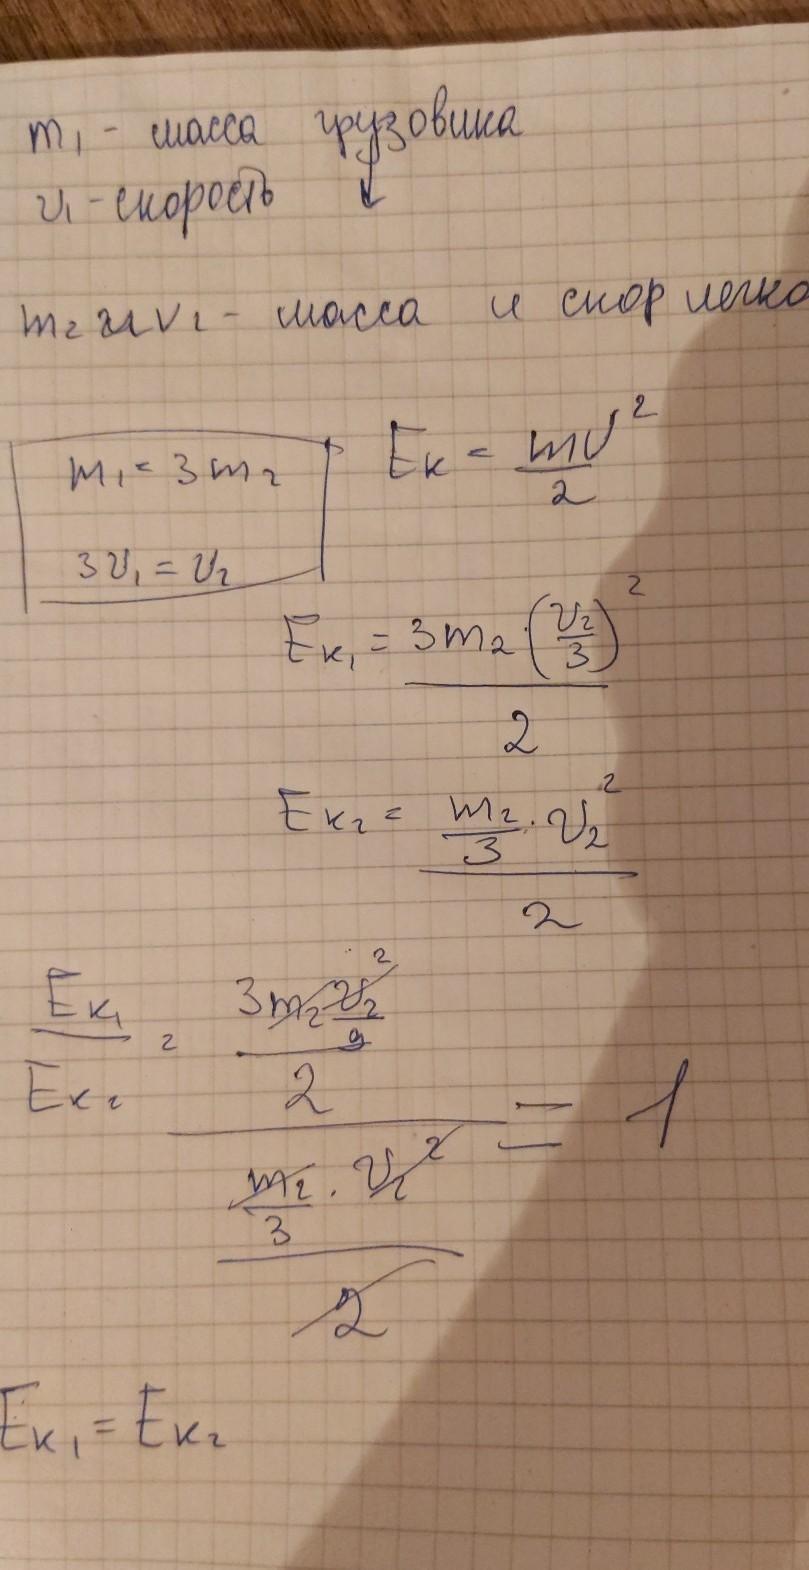 m₁ - масса грузовика
v₁ - скорость ↓
m₂ и v₂ - масса и скор легко
m₁ = 3m₂
3v₁ = v₂
Eк = mv²/2
Eк₁ = 3m₂·(v₂/3)²/2
Eк₂ = m₂/3·v₂²/2
Eк₁/Eк₂ = (3m₂v₂²/9/2)/(m₂/3·v₂²/2) = 1
Eк₁ = Eк₂